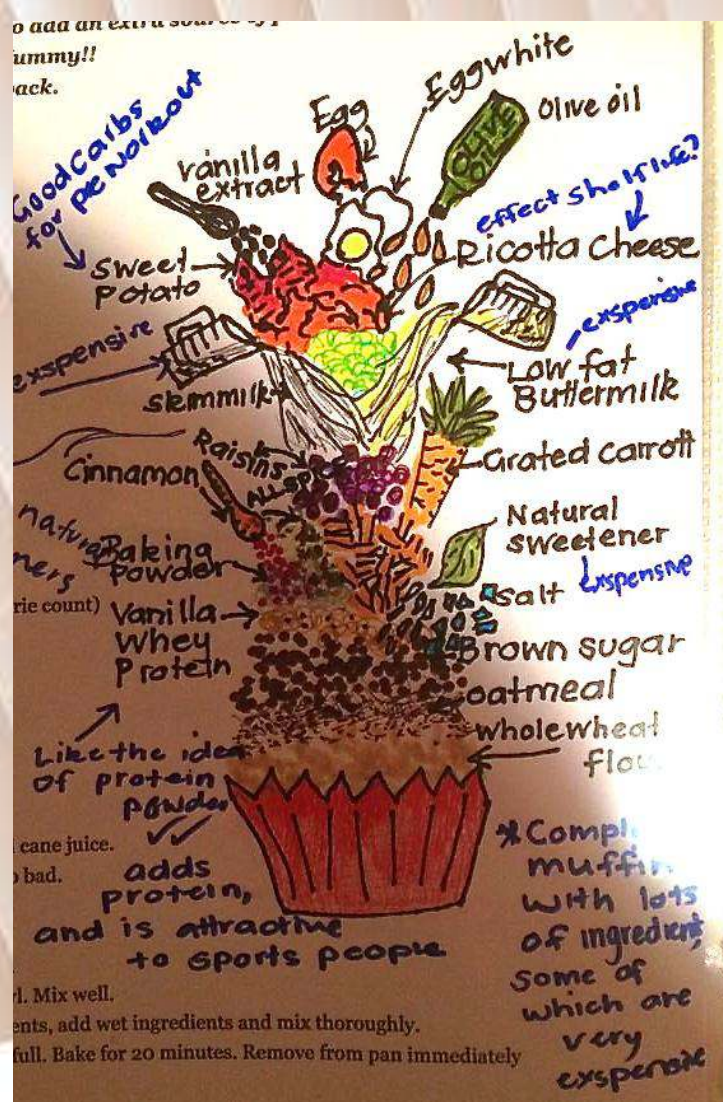 o add an extra
ummy!!
ack.
Good carbs
for pre workout
Egg
Eggwhite
Olive oil
OLIVE
OIL
vanilla
extract
effect shelf life?
Ricotta cheese
Sweet
Potato
exspensive
exspensive
Low fat
Buttermilk
skimmilk
Raisins
ALLSPICE
Cinnamon
Grated carrott
natural
ners
Natural
sweetener
Baking
Powder
salt
Exspensive
rie count)
Vanilla
Whey
Protein
Brown sugar
oatmeal
wholewheat
flou
Like the idea
of protein
powder
cane juice.
o bad.
adds
protein,
and is attractive
to sports people
* Compl
muffin
with lots
of ingredients,
some of
which are
very
exspensive
l. Mix well.
ents, add wet ingredients and mix thoroughly.
full. Bake for 20 minutes. Remove from pan immediately